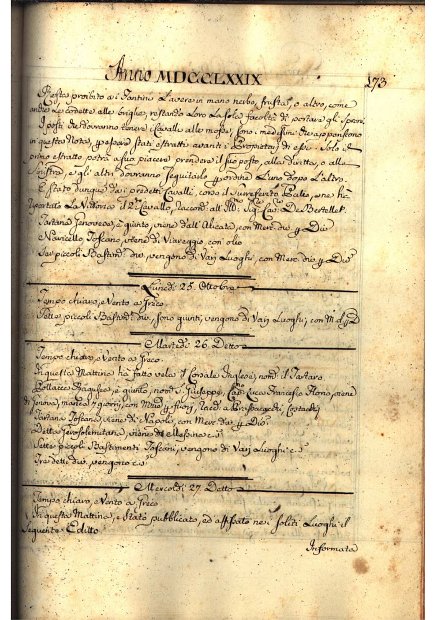 Anno MDCCLXXIX
173
Resta proibito a i Fantini l'avere in mano nerbo, frusta, o altro, come
anche le codette alle briglie, restando loro la sola facoltà di portare gli sproni
I posti che dovranno tenere i Cavalli alle mosse, sono i medesimi che appongono
in questa Nota, e essere stati estratti avanti i Propietarj di essi. Solo il
primo estratto potrà a suo piacere prendere il suo posto, alla diritta, o alla
sinistra, e gli altri dovranno seguitarlo p ordine l'uno dopo l'altro.
È stato dunque da i predetti Cavalli, corso il surreferito Palio, e ne hà
riportato la Vittoria il 2° Cavallo, all' De Bertellet
Tartana Genovese, è giunto, viene dall' Alicata, con Merc. die p Dio
Navicello Toscano, viene di Viareggio, con olio
Sei piccoli Bastim. die, vengono di Varj Luoghi, con Merc. die p Dio
Lunedì 25. Ottobre
Tempo chiaro, e Vento a Greco
Sette piccoli Bastim. die, sono giunti, vengono di Varj Luoghi, con M. p D
Martedì 26. Detto
Tempo chiaro, e Vento a Greco
In questa Mattina hà fatto vela il Corsale Inglese, nom. il Tartaro
Pollacca Ragusea, è giunto, nom. S. Giuseppe, Cap. Luca Francesco Florio, viene
di Genova, manca 7 giorni, con Merc. p
Tartana Toscana, viene di Napoli, con Merc. die p Dio
Detta Gerosolimitana, viene di Messina
Sette piccoli Bastimenti Toscani, vengono di Varj Luoghi
Tre detti die, vengono
Mercoldì 27. Detto
Tempo chiaro, e Vento a Greco
In questa Mattina, è stato pubblicato, ed affissato nei soliti Luoghi il
seguente Editto
Informata